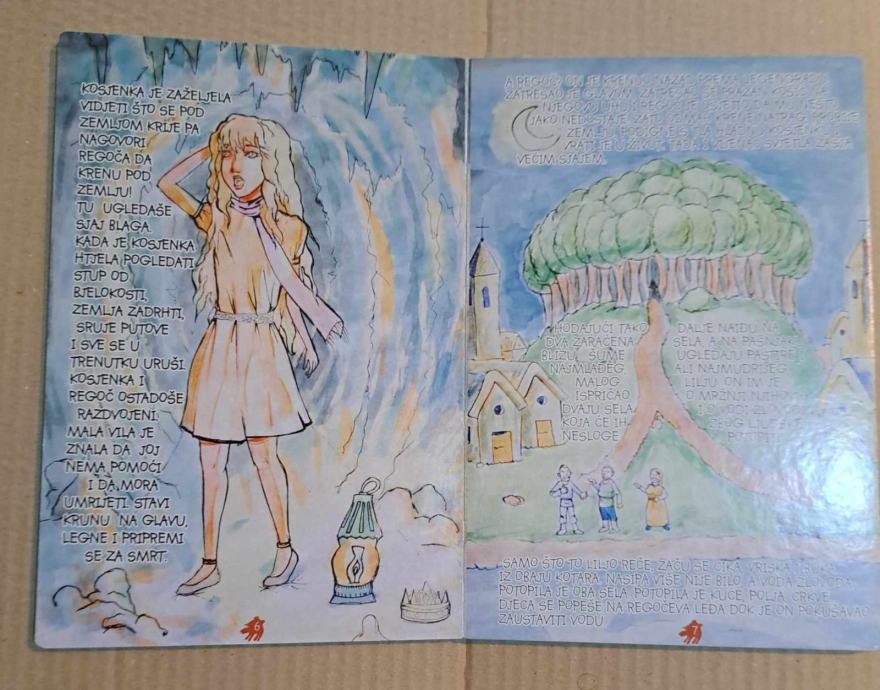 KOSJENKA JE ZAŽELJELA
VIDJETI ŠTO SE POD
ZEMLJOM KRIJE PA
NAGOVORI
REGOČA DA
KRENU POD
ZEMLJU!
TU UGLEDAŠE
SJAJ BLAGA.
KADA JE KOSJENKA
HTJELA POGLEDATI
STUP OD
BJELOKOSTI,
ZEMLJA ZADRHTI,
SRUJE PUTOVE
I SVE SE U
TRENUTKU URUŠI.
KOSJENKA I
REGOČ OSTADOŠE
RAZDVOJENI.
MALA VILA JE
ZNALA DA JOJ
NEMA POMOĆI
I DA MORA
UMRIJETI. STAVI
KRUNU NA GLAVU,
LEGNE I PRIPREMI
SE ZA SMRT.
6
A REGOČ? ON JE KRENUO NAZAD PREMA LEGENGRADU.
ZATRESAO JE GLAVOM, ZATRESAO SE PRAZAN
NJEGOVU UHU I REGOČ SE SJETI DA MU NEŠTO
JAKO NEDOSTAJE. ZATO
ZEMLJU, PODIGNE
VRATI JE U ŽIVOT. TADA I MJESEC ZASVIJETLI ZAST
VEĆIM SJAJEM.
HODAJUĆI TAKO DALJE NAIĐU NA
DVA ZARAĆENA SELA, A NA PAŠNJAK
BLIZU ŠUME UGLEDAJU PASTIRE
NAJMLAĐEG ALI NAJMUDRIJEG
MALOG LILJU. ON IM JE
ISPRIČAO O MRŽNJI NJIHOVIH
DVAJU SELA I O VODI
KOJA ĆE IH ZBOG
NESLOGE
SAMO ŠTO TO LILJO REČE, ZAČU SE CIKA, VRISKA
IZ OBAJU KOTARA. NASIPA VIŠE NIJE BILO, A VODA
POTOPILA JE OBA SELA, POTOPILA JE KUĆE, POLJA, CRKVE.
DJECA SE POPEŠE NA REGOČEVA LEĐA DOK JE ON POKUŠAVAO
ZAUSTAVITI VODU.
7